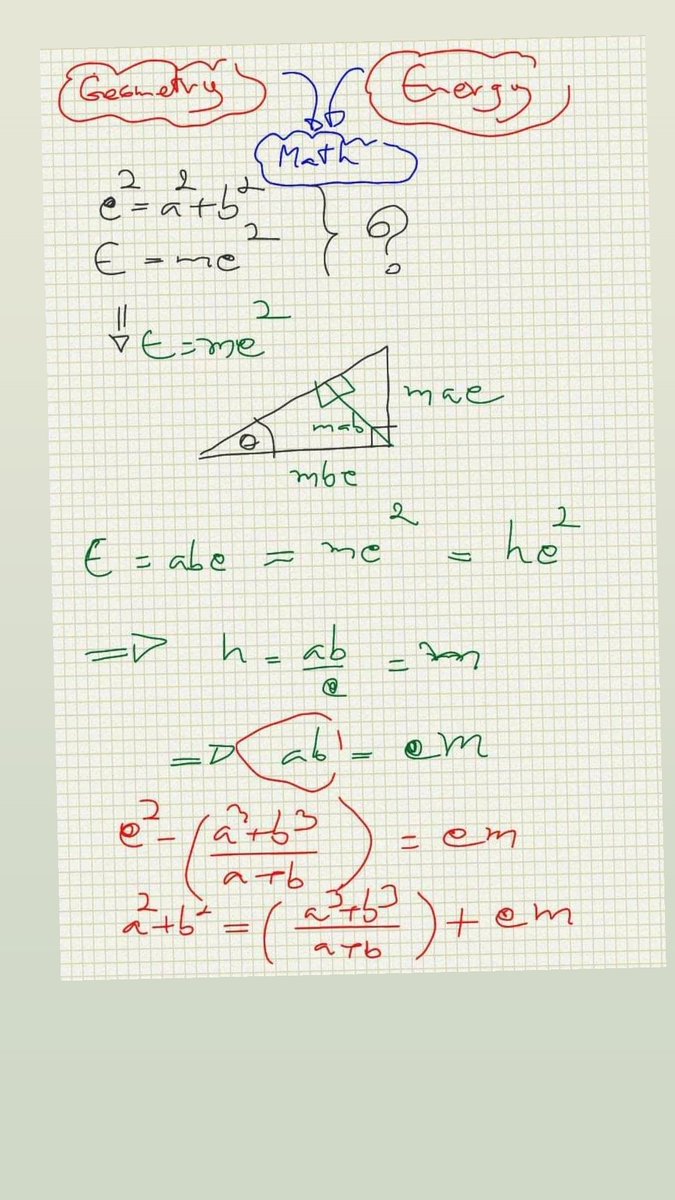 Geometry Energy
Math
e² = a² + b²
E = me² } ?
⇓ E = me²
mae
mab
θ
mbe
E = abe = me² = he²
=> h = ab/e = m
=> ab = em
e² - ((a³+b³)/(a+b)) = em
a² + b² = ((a³+b³)/(a+b)) + em